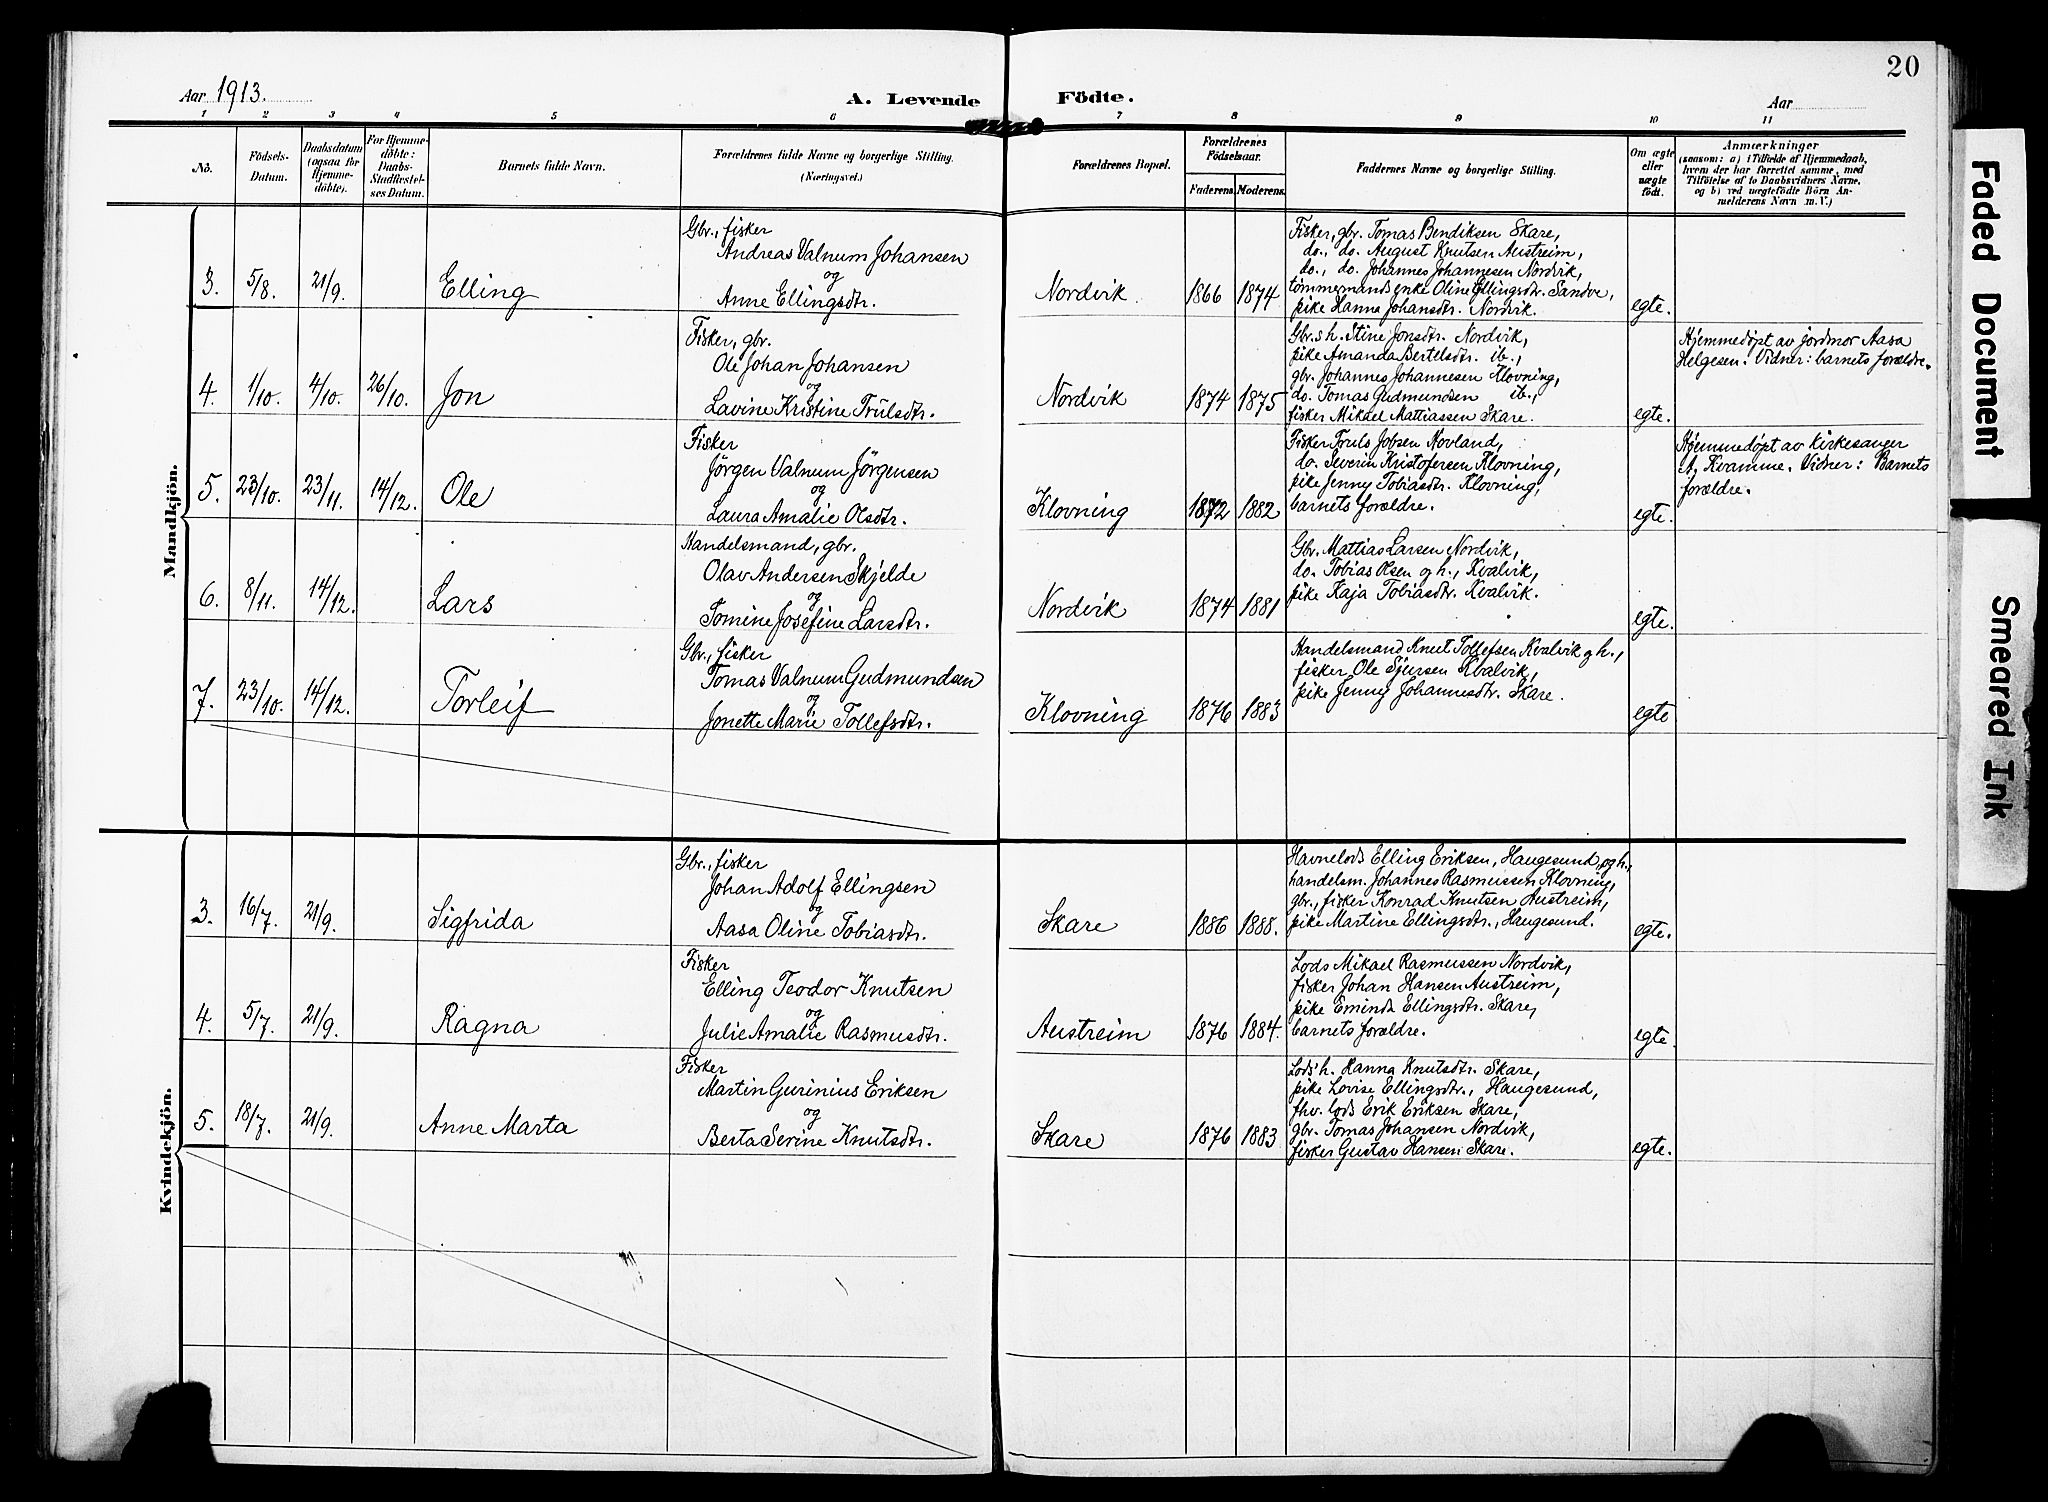 20
Aar 1913.
A. Levende Födte.
Aar
1 2 3 4 5 6 7 8 9 10 11
No.
Födsels-Datum.
Daabsdatum (ogsaa for Hjemme-döbte).
For Hjemme-döbte: Daabs-Stadfæstel-ses Datum.
Barnets fulde Navn.
Forældrenes fulde Navne og borgerlige Stilling. (Næringsvei.)
Forældrenes Bopæl.
Forældrenes Födselsaar.
Faderens. Moderens.
Faddernes Navne og borgerlige Stilling.
Om ægte eller uægte födt.
Anmærkninger
(saasom: a) i Tilfælde af Hjemmedaab,
hvem der har forrettet samme, med
Tilföielse af to Daabsvidners Navne,
og b) ved uægtefödte Börn An-
melderens Navn m. V.)
Mandkjön.
3. 5/8. 21/9. Elling
Gbr., fisker
Andreas Valnum Johansen
og
Anne Ellingsdtr.
Nordvik. 1866 1874
Fisker, gbr. Tomas Bendiksen Skare,
do., do. August Knutsen Austreim,
do., do. Johannes Johannesen Nordvik,
tømmermands enke Oline Ellingsdtr. Sandve,
pike Hanna Johansdtr. Nordvik.
egte.
4. 1/10. 4/10. 26/10. Jon
Fisker, gbr.
Ole Johan Johansen
og
Lavine Kristine Trulsdtr.
Nordvik 1874 1875
Gbr.s h. Stine Jonsdtr. Nordvik,
pike Amanda Bertelsdtr. ib.,
gbr. Johannes Johannesen Klovning,
do. Tomas Gudmundsen ib.,
fisker Mikael Mattiassen Skare.
egte.
Hjemmedøpt av jordmor Aasa
Helgesen. Vidner: barnets forældre.
5. 23/10. 23/11. 14/12. Ole
Fisker
Jörgen Valnum Jörgensen
og
Laura Amalie Olsdtr.
Klovning 1872 1882
Fisker Truls Jobsen Novland,
do. Severin Kristofersen Klovning,
pike Jenny Tobiasdtr. Klovning,
barnets forældre.
egte.
Hjemmedøpt av kirkesanger
A. Kvamme. Vidner: Barnets
forældre.
6. 8/11. 14/12. Lars
Handelsmand, gbr.
Olav Andersen Skjelde
og
Tomine Josefine Larsdtr.
Nordvik 1874 1881
Gbr. Mattias Larsen Nordvik,
do. Tobias Olsen og h., Kvalvik,
pike Kaja Tobiasdtr. Kvalvik.
egte.
7. 23/10. 14/12. Torleif
Gbr., fisker
Tomas Valnum Gudmundsen
og
Jonette Marie Tollefsdtr.
Klovning 1876 1883
Handelsmand Knut Tollefsen Kvalvik og h.,
fisker Ole Sjursen Kvalvik,
pike Jenny Johannesdtr. Skare.
egte
Kvindekjön.
3. 16/7. 21/9. Sigfrida
Gbr., fisker
Johan Adolf Ellingsen
og
Aasa Oline Tobiasdtr.
Skare 1886 1888.
Havnelods Elling Eriksen, Haugesund, og h.,
handelsm. Johannes Rasmussen Klovning,
gbr., fisker Konrad Knutsen Austreim,
pike Martine Ellingsdtr., Haugesund.
egte.
4. 5/7. 21/9. Ragna
Fisker
Elling Teodor Knutsen
og
Julie Amalie Rasmusdtr.
Austreim 1876 1884.
Lods Mikael Rasmussen Nordvik,
fisker Johan Hansen Austreim,
pike Eminda Ellingsdtr. Skare,
barnets forældre.
egte.
5. 18/7. 21/9. Anne Marta
Fisker
Martin Gurinius Eriksen
og
Berta Serine Knutsdtr.
Skare 1876 1883
Lods' h. Hanna Knutsdtr. Skare,
pike Lovise Ellingsdtr., Haugesund,
fhv. lods Erik Eriksen Skare,
gbr. Tomas Johansen Nordvik,
fisker Gustav Hansen Skare.
egte.
Faded Document
Smeared Ink